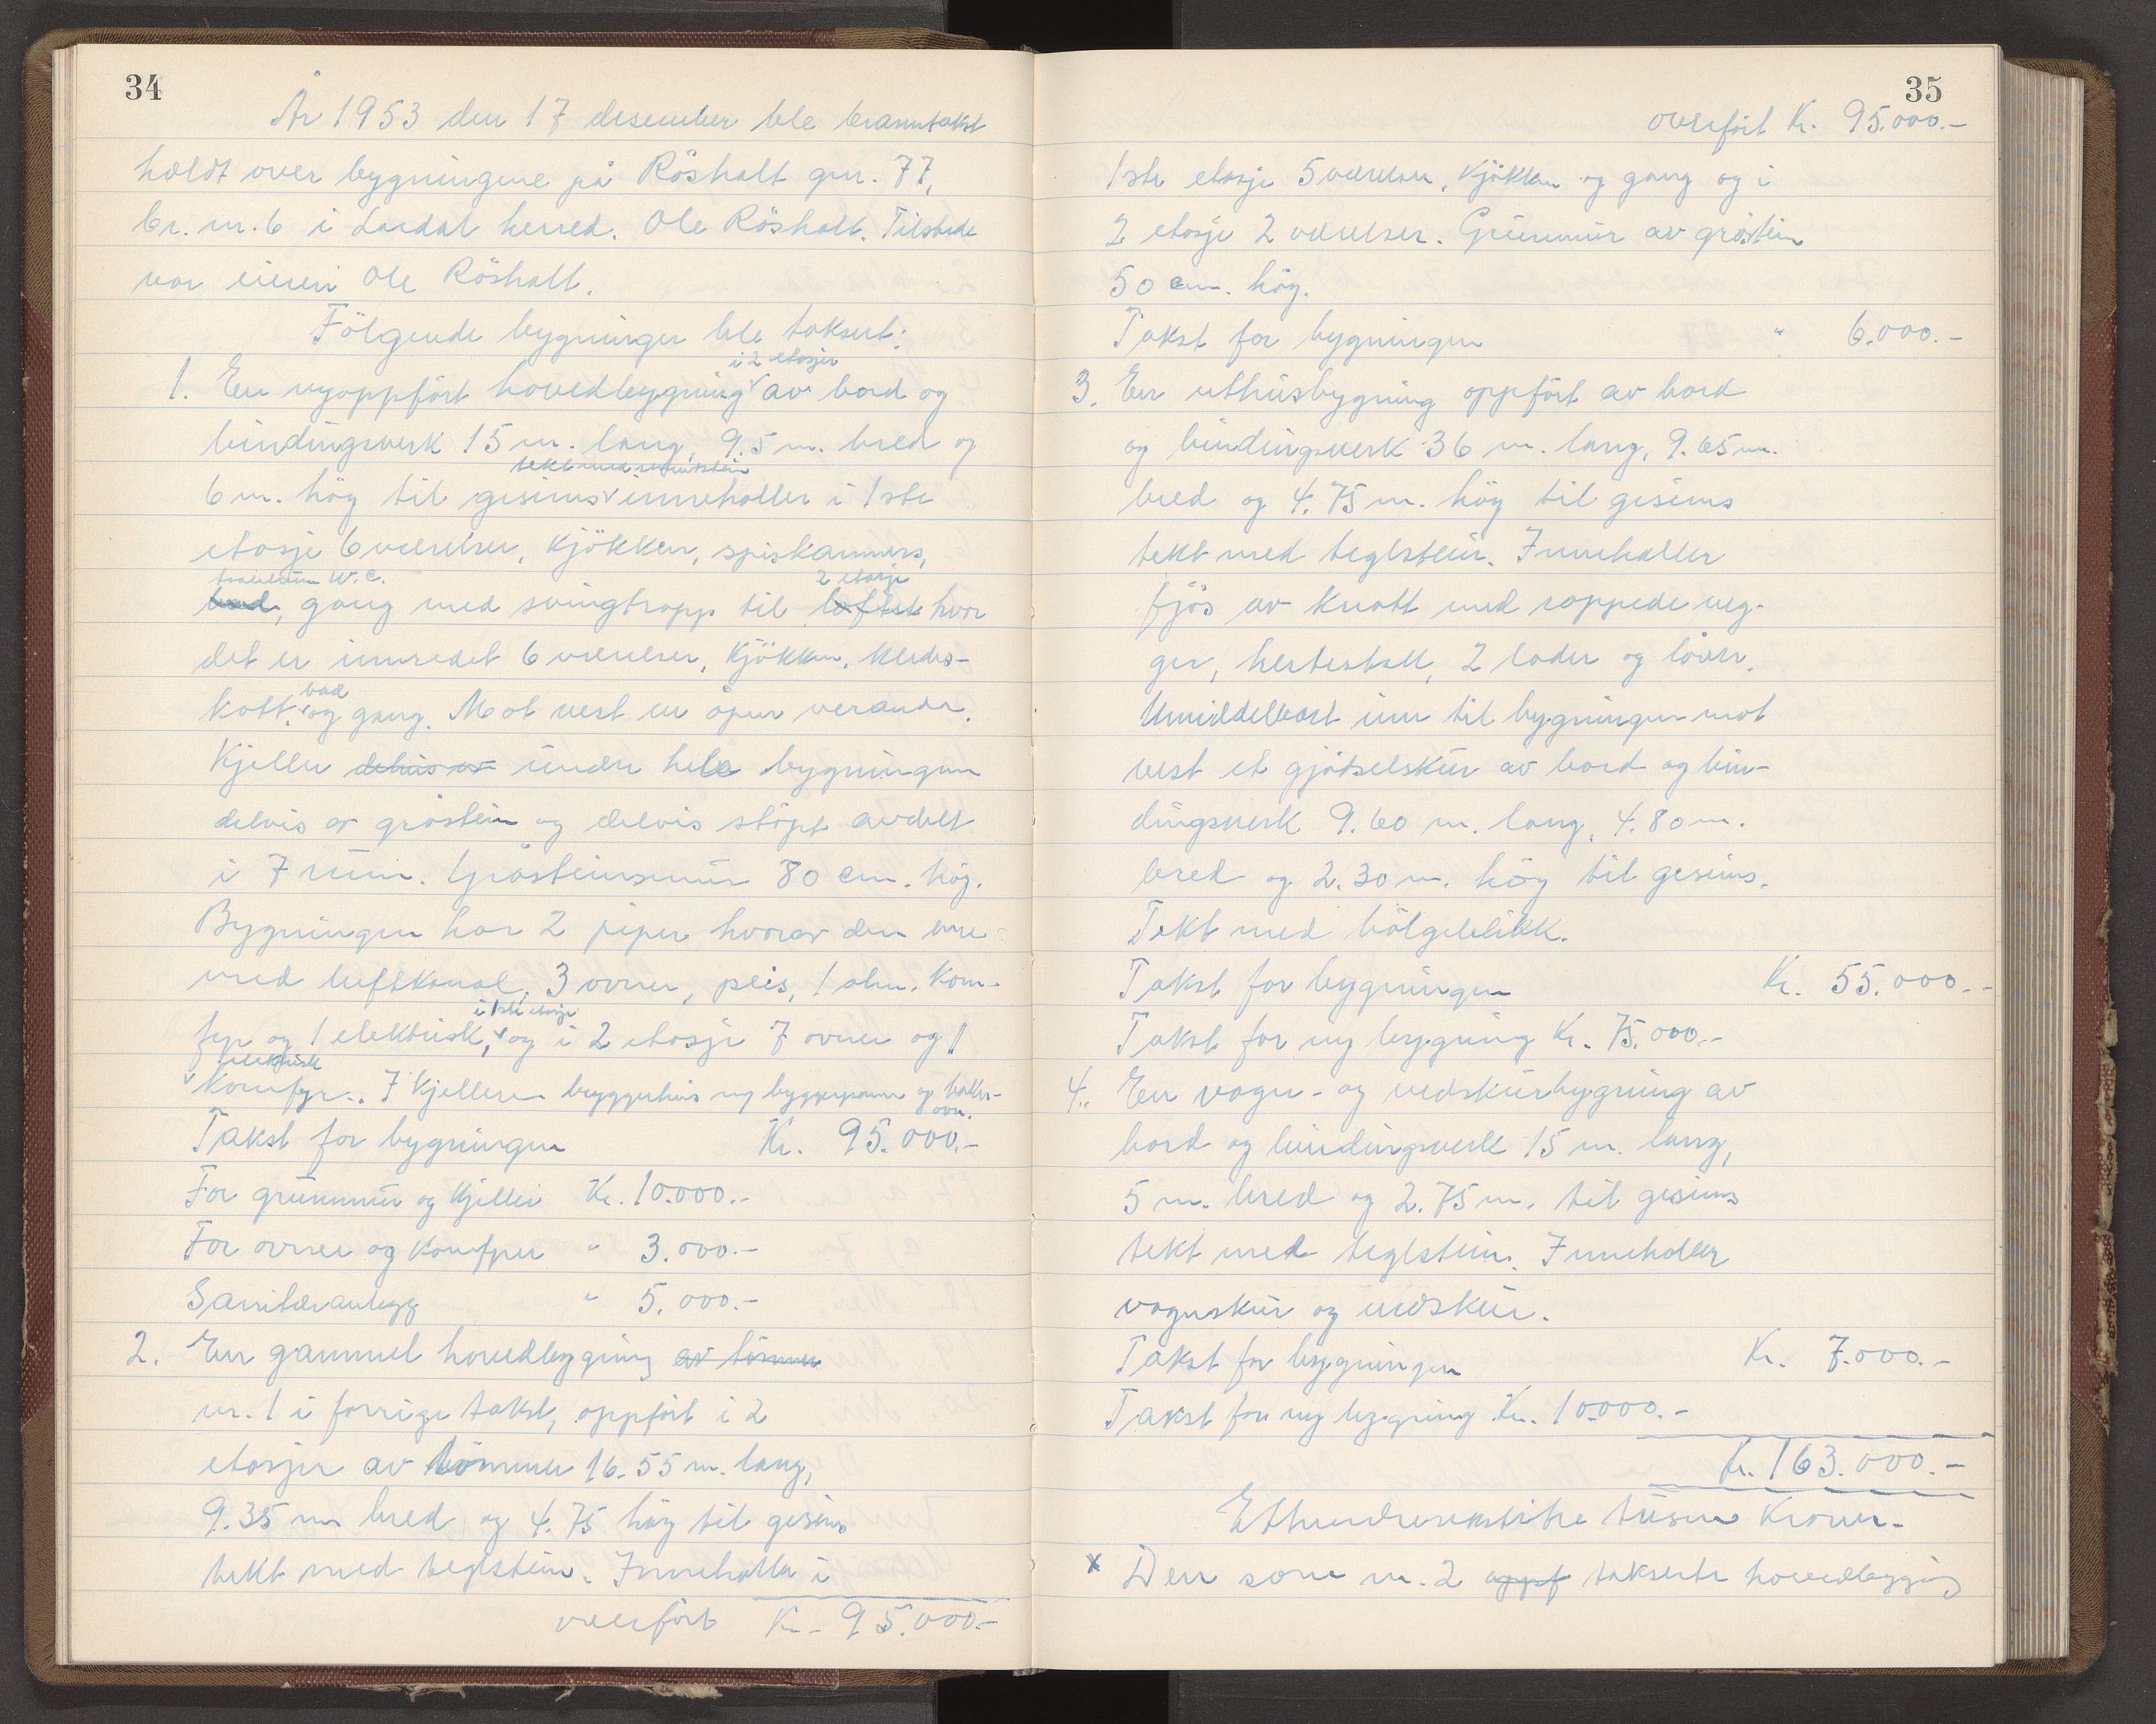 34
År 1953 den 17 desember ble branntakst
holdt over bygningene på Röshalt gnr. 77,
br. nr. 6 i Lardal herred. Ole Röshalt. Tilstede
var eieren Ole Röshalt.
Fölgende bygninger ble taksert:
i 2 etasjer
1. En nyoppfört hovedbygning av bord og
bindingsverk 15 m. lang, 9.5 m. bred og
tekt med sementstein
6 m. hög til gesims inneholler i 1ste
etasje 6 værelser, kjökken, spiskammers,
toalettrum W.C. 2 etasje
bad, gang med svingtrapp til loftet hvor
det er innredet 6 værelser, kjökken, kledes-
bad
kott, og gang. Mot vest en åpen veranda.
Kjeller delvis av under hele bygningen
delvis av gråstein og delvis stöpt avdelt
i 7 rum. Gråsteinsmur 80 cm. hög.
Bygningen har 2 piper hvorav den ene
med luftkanal. 3 ovner, peis, 1 alm. kom-
i 1ste etasje
fyr og 1 elektrisk, og i 2 etasje 7 ovner og 1
elektrisk
komfyr. I kjelleren bryggehus og bryggepanne og baker-
ovn.
Takst for bygningen Kr. 95.000.-
For grunnmur og kjeller Kr. 10.000.-
For ovner og komfyrer " 3.000.-
Sanitæranlegg " 5.000.-
2. En gammel hovedbygning av tömmer
nr. 1 i forrige takst, oppfört i 2
etasjer av tömmer 16.55 m. lang,
9.35 m bred og 4.75 hög til gesims
tekt med teglstein. Inneholler i
overfört Kr. 95.000.-
35
overfört Kr. 95.000.-
1ste etasje 5 værelser, kjökken og gang og i
2 etasje 2 værelser. Grunnmur av gråstein
50 cm. hög.
Takst for bygningen " 6.000.-
3. En uthusbygning oppfört av bord
og bindingsverk 36 m. lang, 9.65 m.
bred og 4.75 m. hög til gesims
tekt med teglstein. Inneholler
fjös av knott med rappede veg-
ger, hestestall, 2 lader og låver.
Umiddelbart inn til bygningen mot
vest et gjödselskur av bord og bin-
dingsverk 9.60 m. lang, 4.80 m.
bred og 2.30 m. hög til gesims.
Tekt med bölgeblikk.
Takst for bygningen Kr. 55.000.-
Takst for ny bygning Kr. 75.000.-
4. En vogn- og vedskurbygning av
bord og bindingsverk 15 m. lang,
5 m. bred og 2.75 m. til gesims
tekt med teglstein. Inneholler
vognskur og vedskur.
Takst for bygningen Kr. 7.000.-
Takst for ny bygning Kr. 10.000.-
Kr. 163.000.-
Etthundreogsekstitre tusen kroner.
x Den som nr. 2 oppf takserte hovedbygning